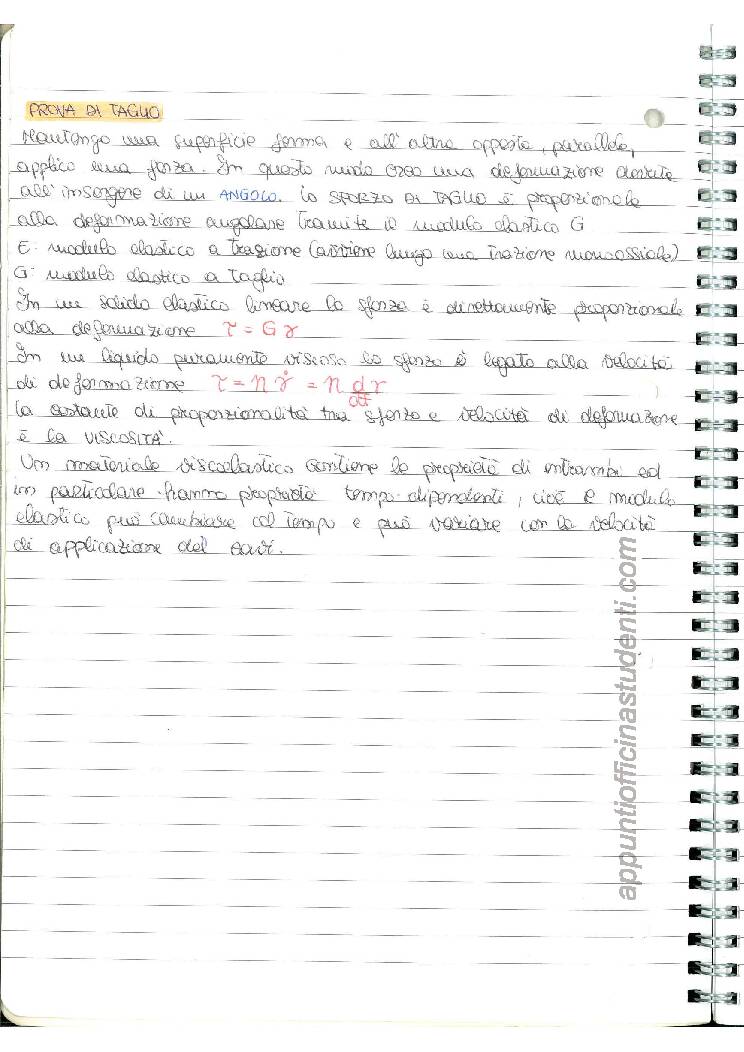 PROVA DI TAGLIO
Mantengo una superficie ferma e all'altra opposta, parallela,
applico una forza. In questo modo creo una deformazione dovuta
all'insorgere di un ANGOLO. Lo SFORZO DI TAGLIO è proporzionale
alla deformazione angolare tramite il modulo elastico G
E: modulo elastico a trazione (avviene lungo una trazione monoassiale)
G: modulo elastico a taglio
In un solido elastico lineare lo sforzo è direttamente proporzionale
alla deformazione τ = G γ
In un liquido puramente viscoso lo sforzo è legato alla velocità
di deformazione τ = η γ̇ = η dγ/dt
la costante di proporzionalità tra sforzo e velocità di deformazione
è la VISCOSITÀ.
Un materiale viscoelastico contiene le proprietà di entrambi ed
in particolare hanno proprietà tempo-dipendenti, cioè il modulo
elastico può cambiare col tempo e può variare con la velocità
di applicazione del
appuntiofficinastudenti.com